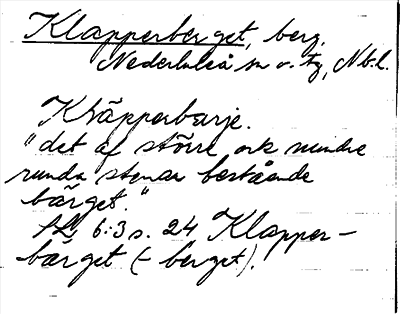 Klapperberget, berg,
Nederluleå sn o. tg, Nb.l.
Kläpperbarje.
"det af större ock mindre
runda stenar bestående
bärget."
6:3 s. 24 Klapper-
bärget (- berget).